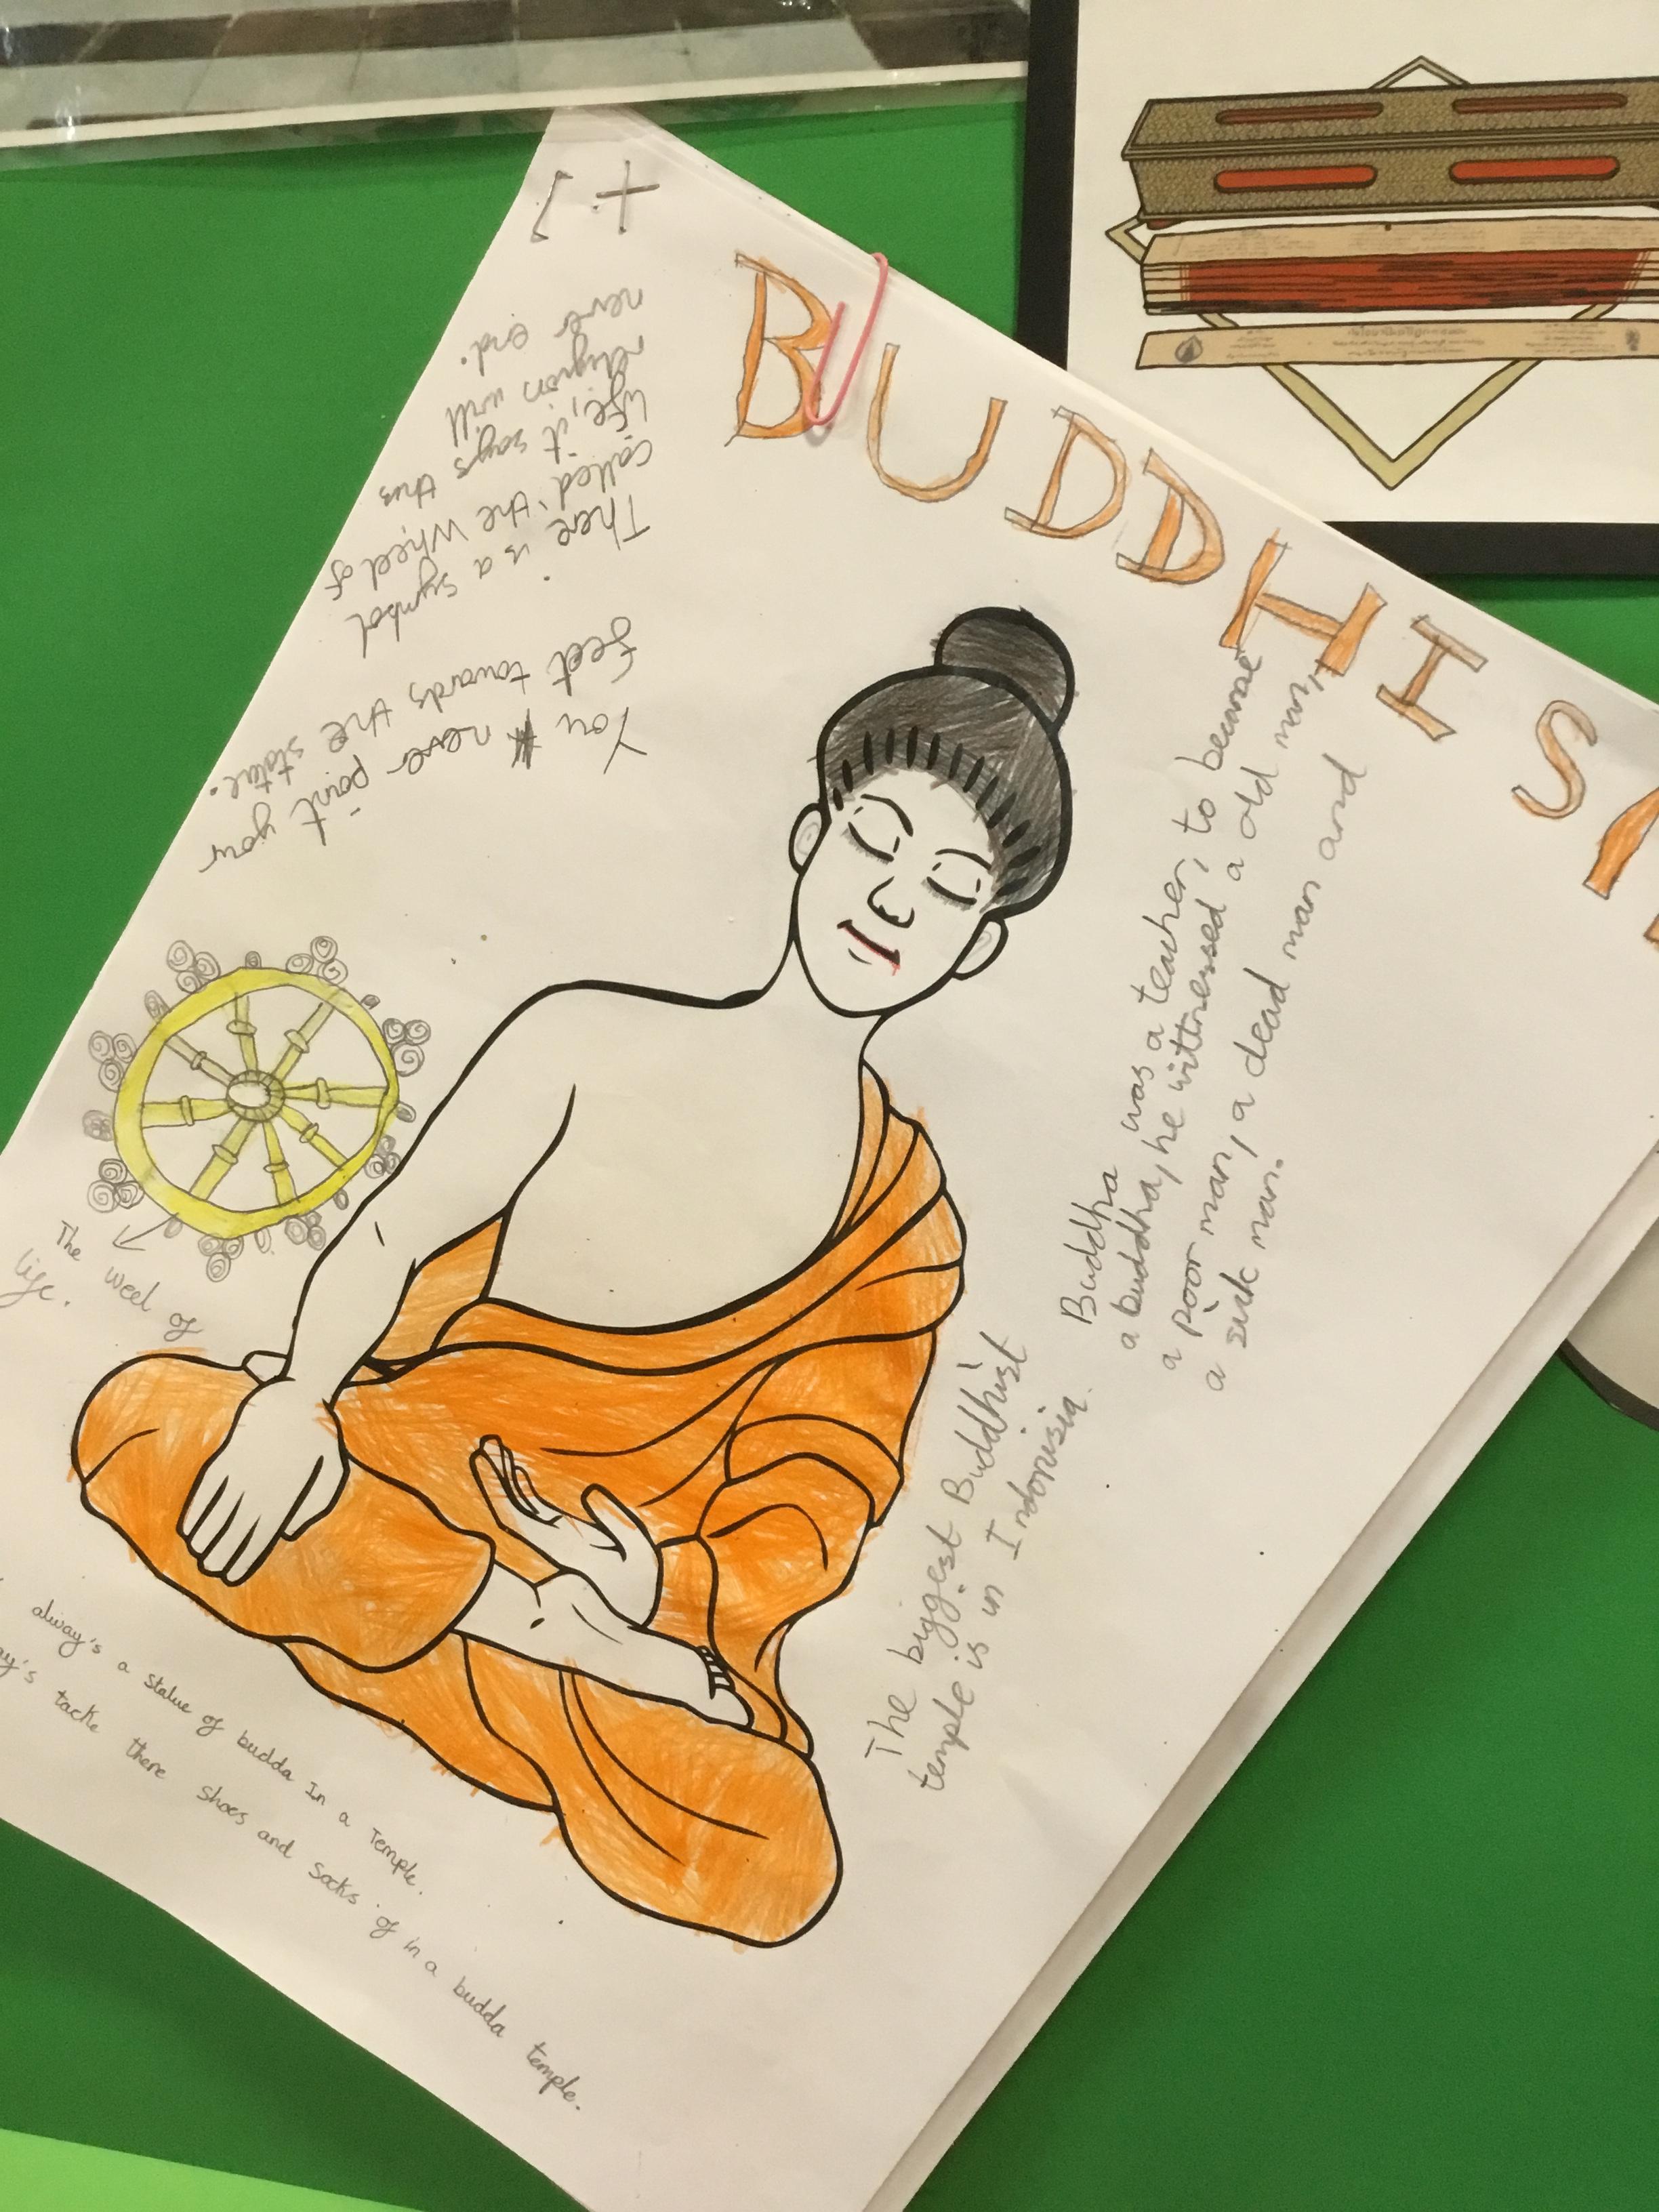 BUDDHIS
You never point your
feet towards the statue.
There is a symbol
called 'the Wheel of
life, it says this
religion will
never end.
The weel of
life.
Buddha was a teacher, to became
a buddha, he wittnessed a old man,
a poor man, a dead man and
a sick man.
The biggest Buddhist
temple is in Indonisia.
alway's a statue of budda In a Temple.
tacke there shoes and socks of in a budda temple.